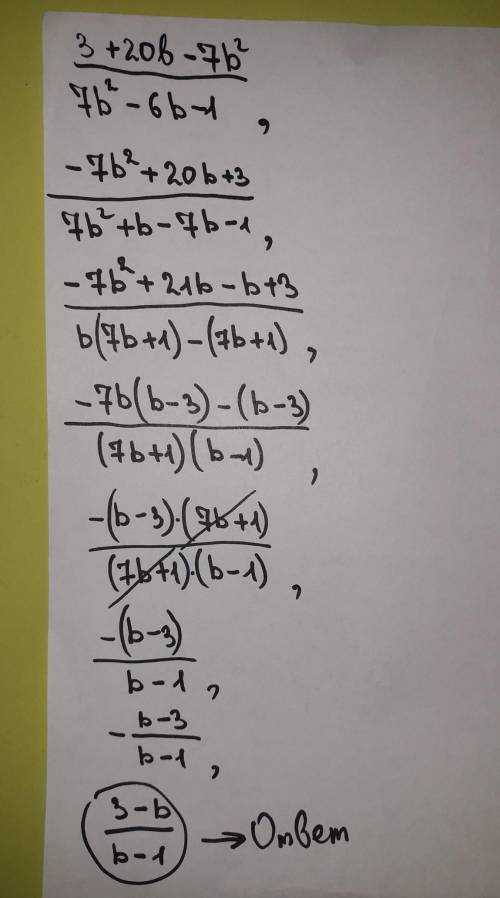 3 + 20b - 7b²
7b² - 6b - 1 ,
-7b² + 20b + 3
7b² + b - 7b - 1 ,
-7b² + 21b - b + 3
b(7b+1) - (7b+1) ,
-7b(b-3) - (b-3)
(7b+1)(b-1) ,
-(b-3)·(7b+1)
(7b+1)·(b-1) ,
-(b-3)
b-1 ,
- b-3
b-1 ,
3-b → Ответ
b-1